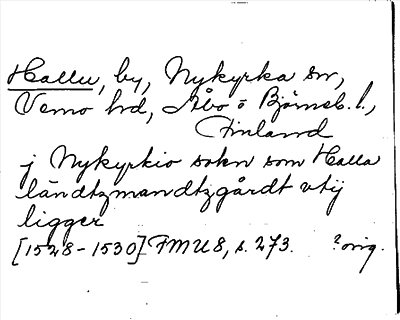 Hallu, by, Nykyrka sn,
Vemo hrd, Åbo o Björneb. l.,
Finland
j Nykyrkio sokn som Halla
ländtzmandtzgårdt vtij
ligger
[1528-1530] FMU 8, s. 273. ?orig.